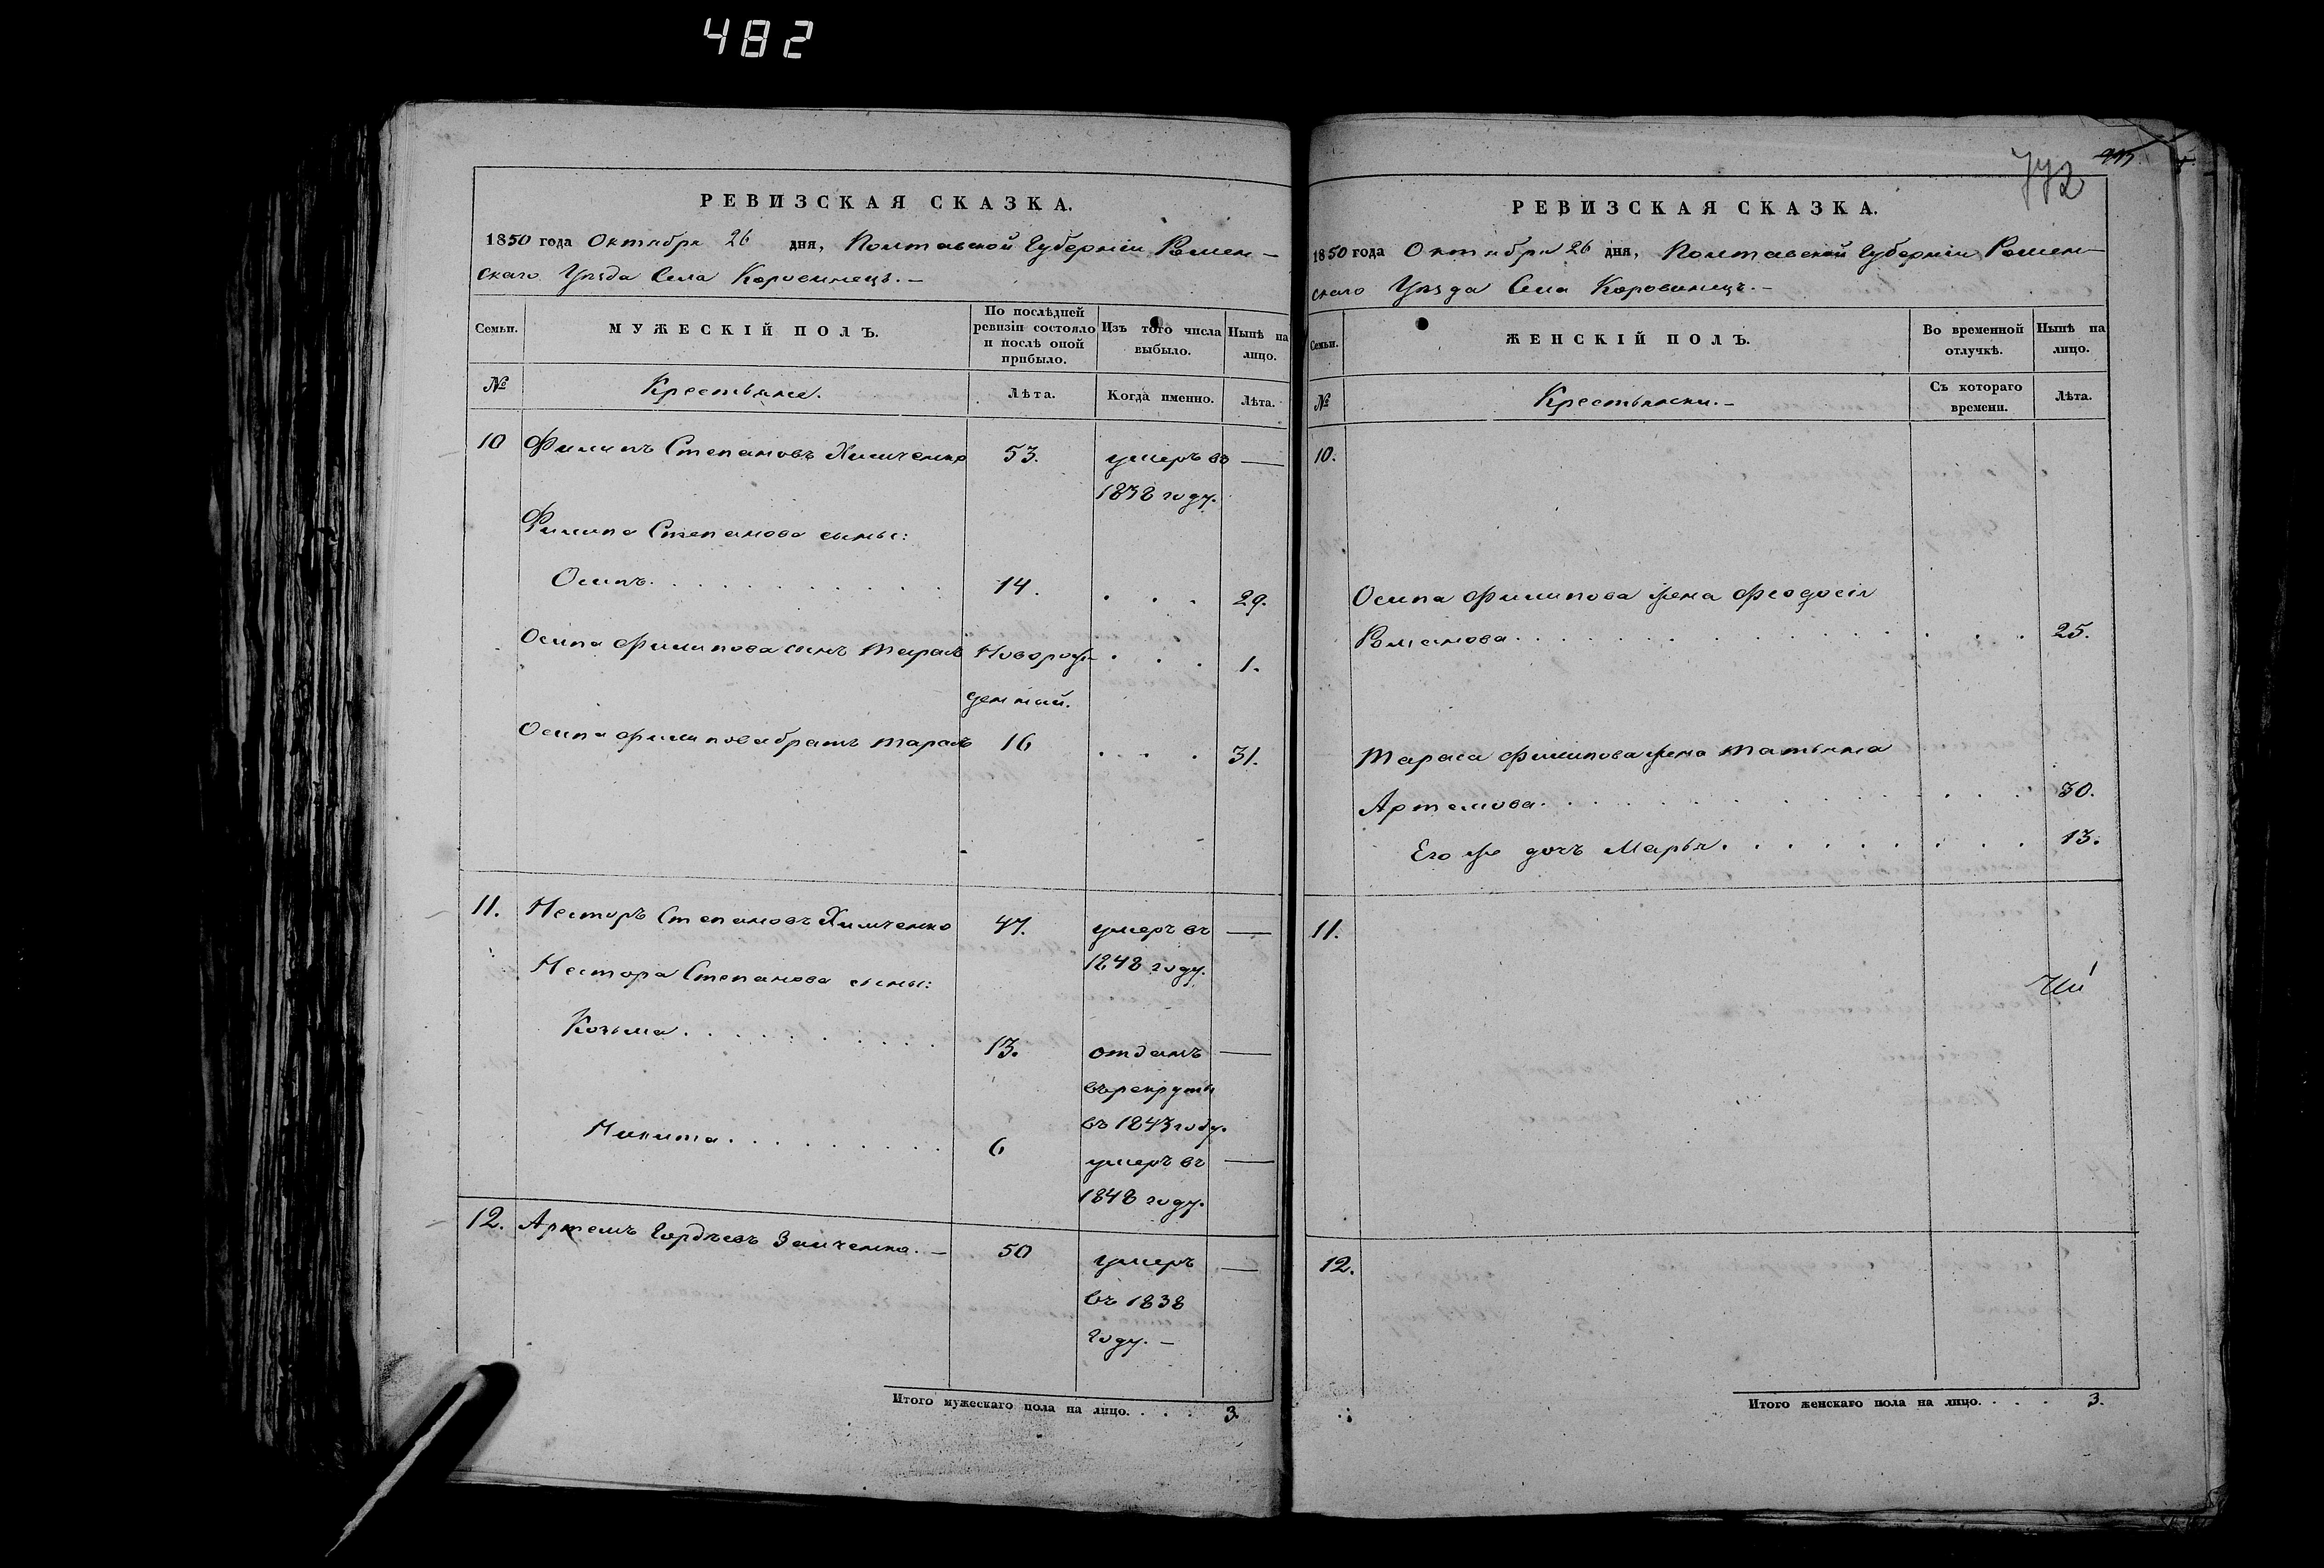 482
РЕВИЗСКАЯ СКАЗКА.
1850 года Октября 26 дня, Полтавской Губерніи Ромен-
скаго Уѣзда Села Коровинецъ.-
Семьи.
МУЖЕСКІЙ ПОЛЪ.
По послѣдней ревизіи состояло и послѣ оной прибыло.
Изъ того числа выбыло.
Нынѣ на лицо.
№
Крестьяне.
Лѣта.
Когда именно.
Лѣта.
10 Филипъ Степановъ Химченко 53. умеръ въ —
1838 году.
Филипа Степанова сыны:
Осипъ. . . . 14. . . . 29.
Осипа Филипова сынъ Тарасъ Новорож- . . . 1.
денный.
Осипа Филипова братъ Тарасъ 16 . . . 31.
11. Несторъ Степановъ Химченко 47. умеръ въ —
1848 году.
Нестора Степанова сыны:
Козьма. . . . 13. отданъ —
въ рекруты
въ 1843 году.
Никита. . . . 6 умеръ въ —
1848 году.
12. Артемъ Гордѣевъ Заиченко.- 50 умеръ —
въ 1838
году.-
Итого мужескаго пола на лицо. . . . 3.
772
РЕВИЗСКАЯ СКАЗКА.
1850 года Октября 26 дня, Полтавской Губерніи Ромен-
скаго Уѣзда Села Коровинецъ.-
Семьи.
ЖЕНСКІЙ ПОЛЪ.
Во временной отлучкѣ.
Нынѣ на лицо.
№
Крестьянски.-
Съ котораго времени.
Лѣта.
10.
Осипа Филипова жена Феодосія
Романова. . . . 25.
Тараса Филипова жена Татьяна
Артемова. . . . 30.
Его же дочь Марья. . . . 13.
11.
12.
Итого женскаго пола на лицо. . . . 3.